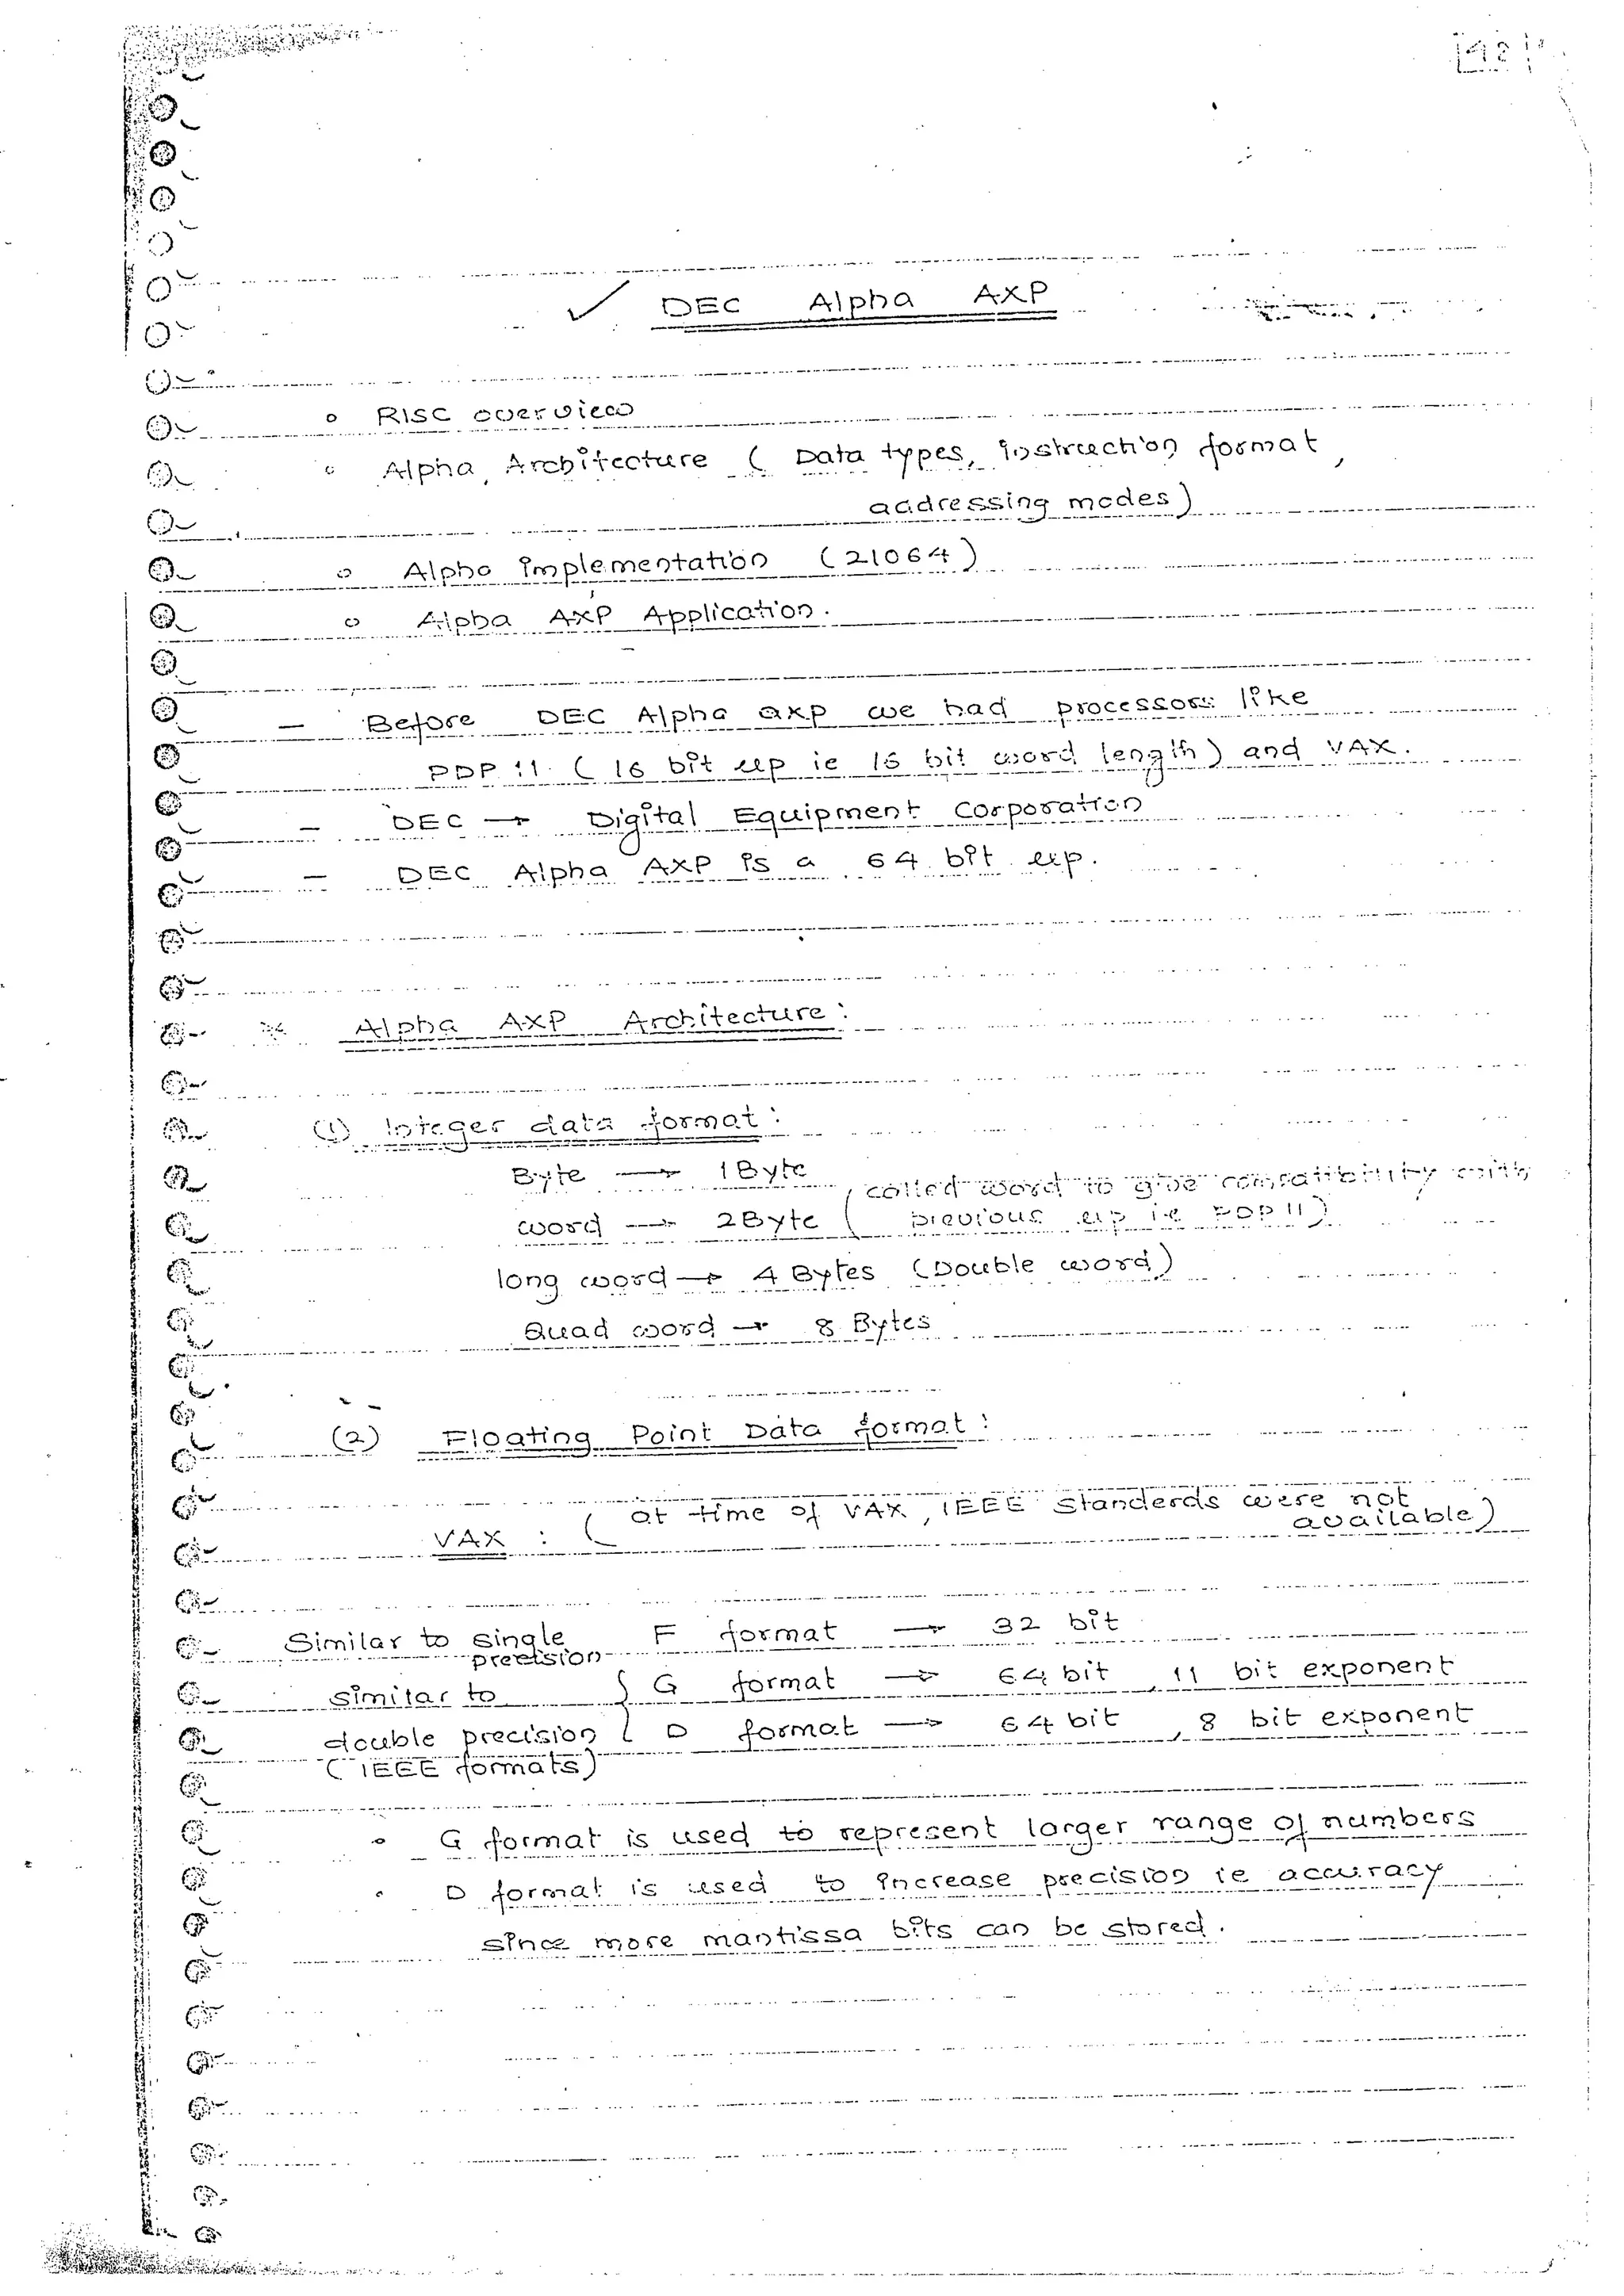 ✓ DEC Alpha AXP
o RISC overview
o Alpha Architecture ( Data types, instruction format,
addressing modes)
o Alpha Implementation (21064)
o Alpha AXP Application.
— Before DEC Alpha axp we had processors like
PDP 11 ( 16 bit up ie 16 bit word length) and VAX.
— DEC → Digital Equipment Corporation
— DEC Alpha AXP is a 64 bit up.
Alpha AXP Architecture:
(1) Integer data format:
Byte → 1 Byte
called word to give compatibility with
word → 2 Byte ( previous up ie PDP 11)
long word → 4 Bytes (Double word)
Quad word → 8 Bytes
(2) Floating Point Data format:
at time of VAX, IEEE standerds were not
VAX : ( available)
Similar to single F format → 32 bit
precision
similar to { G format → 64 bit, 11 bit exponent
double precision { D format → 64 bit, 8 bit exponent
(IEEE formats)
• G format is used to represent larger range of numbers
• D format is used to increase precision ie accuracy
since more mantissa bits can be stored.